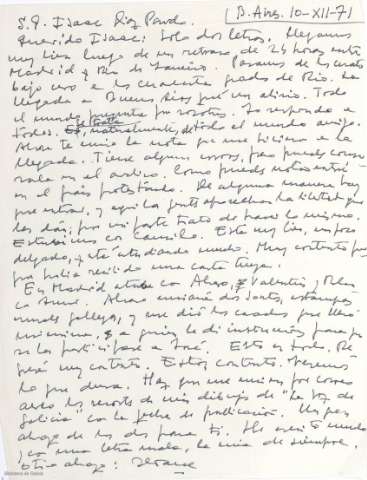 B. Aires, 10-XII-71
S. D. Isaac Díaz Pardo.
Querido Isaac: Solo dos letras. Llegamos
muy bien luego de un retraso de 24 horas entre
Madrid y Río de Janeiro. Pasamos de los
bajo cero a los cuarenta grados de Río. La
llegada a Buenos Aires fué un alivio. Todo
el mundo pregunta por vosotros. Yo respondo a
todos. naturalmente, todo el mundo amigo.
Ahí te envío la nota que me hicieron a la
llegada. Tiene algunos errores, pero puedes conser-
varla en el archivo. Como puedes notar entré
en el país protestando. De alguna manera hay
que entrar, y aquí la gente aprovecha la libertad que
les dan, por mi parte trato de hacer lo mismo.
Estuvimos con Camilo. Está muy bien, un poco
delgado, y está trabajando mucho. Muy contento por-
que había recibido una carta tuya.
En Madrid estaba Alvaro, Valentín, y
Alvaro enviará dos
gallega, y me dió los
mínima, a quien le dí instrucciones para que
se las participase a José. Esto es todo. Re-
gresé muy contento. Estoy contento. Veremos
lo que dura. Haz que me envíen por correo
aéreo los recorts de mis dibujos de "La Voz de
Galicia" con la fecha de publicación. Un gran
abrazo de los dos para ti. He escrito mucho
y con una letra mala, la mía de siempre.
Otro abrazo: Seoane
Biblioteca de Galicia